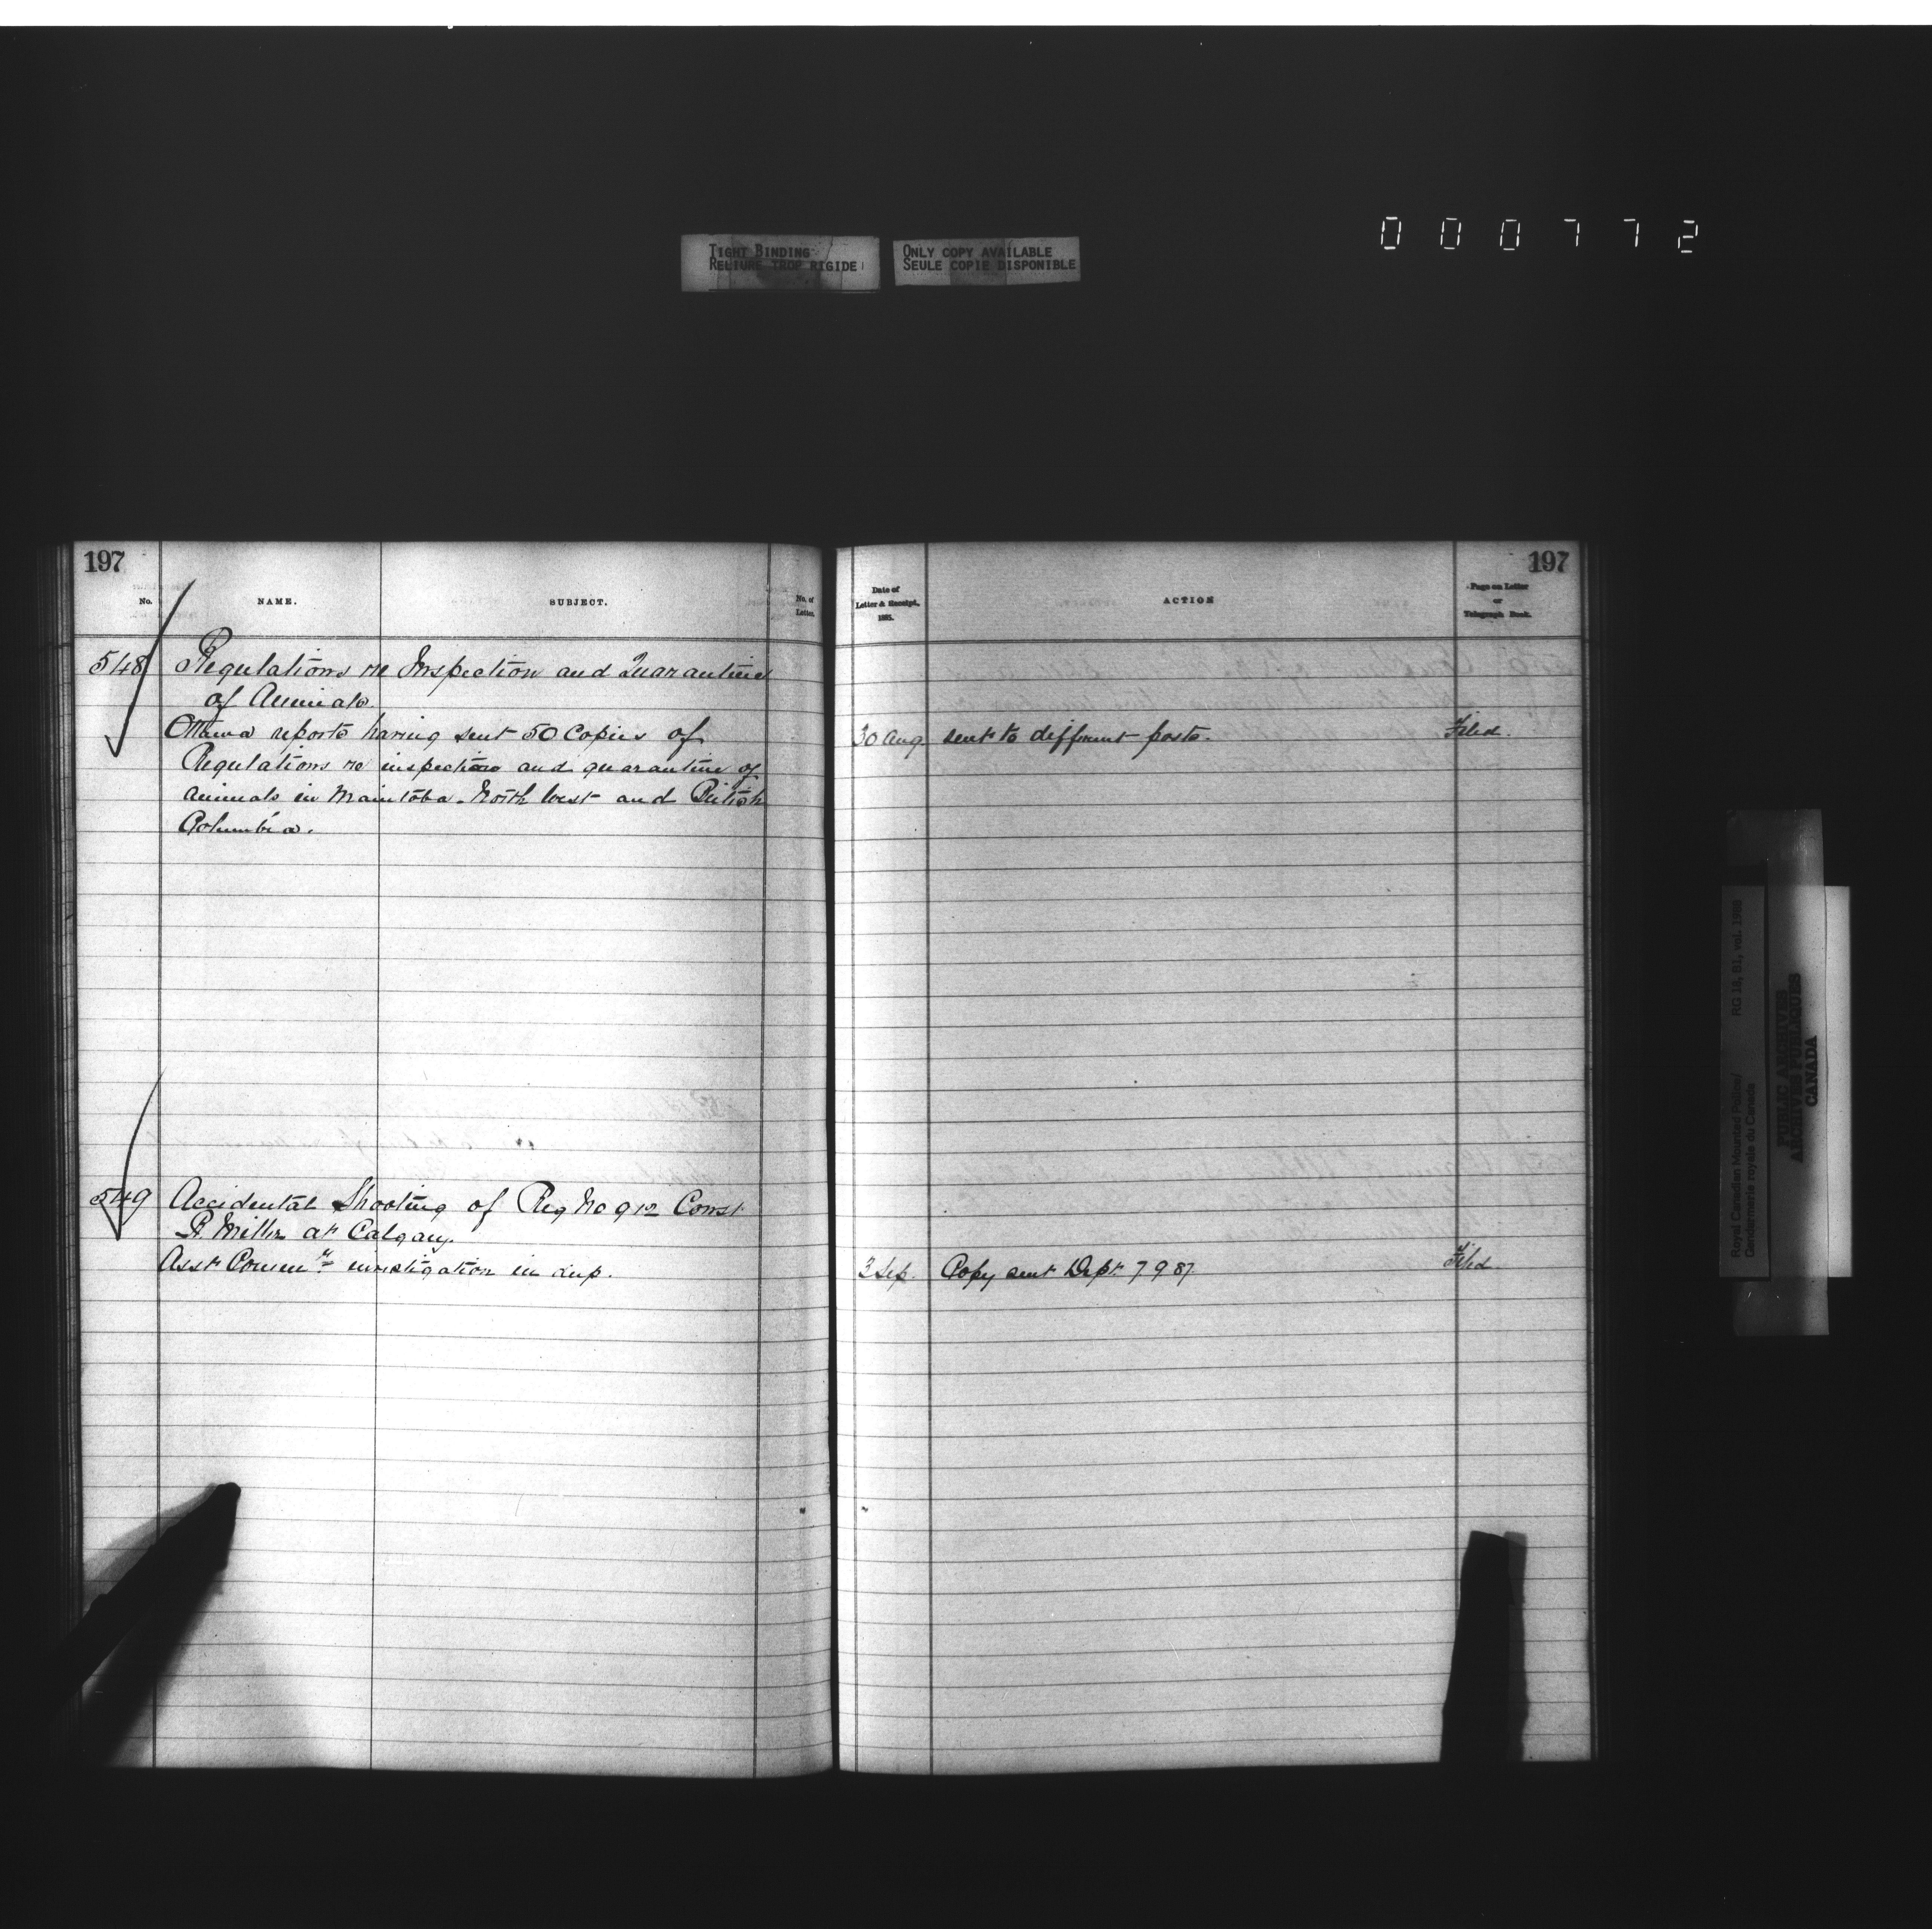 000772
TIGHT BINDING
RELIURE TROP RIGIDE
ONLY COPY AVAILABLE
SEULE COPIE DISPONIBLE
197
No.
NAME.
SUBJECT.
No. of
Letter.
548 Regulations re Inspection and Quarantine
of Animals.
Ottawa reports having sent 50 Copies of
Regulations re inspection and quarantine of
animals in Manitoba. North West and British
Columbia.
549 Accidental Shooting of Reg No 912 Const
Miller at Calgary.
Asst Commr investigation in dup.
197
Date of
Letter & Receipt,
1885.
ACTION
Page on Letter
or
Telegraph Book.
30 Aug. sent to different posts. Filed.
3 Sep. Copy sent Dept. 7 9 87. Filed.
Royal Canadian Mounted Police/ RG 18, B1, vol. 1988
Gendarmerie royale du Canada
PUBLIC ARCHIVES
ARCHIVES PUBLIQUES
CANADA